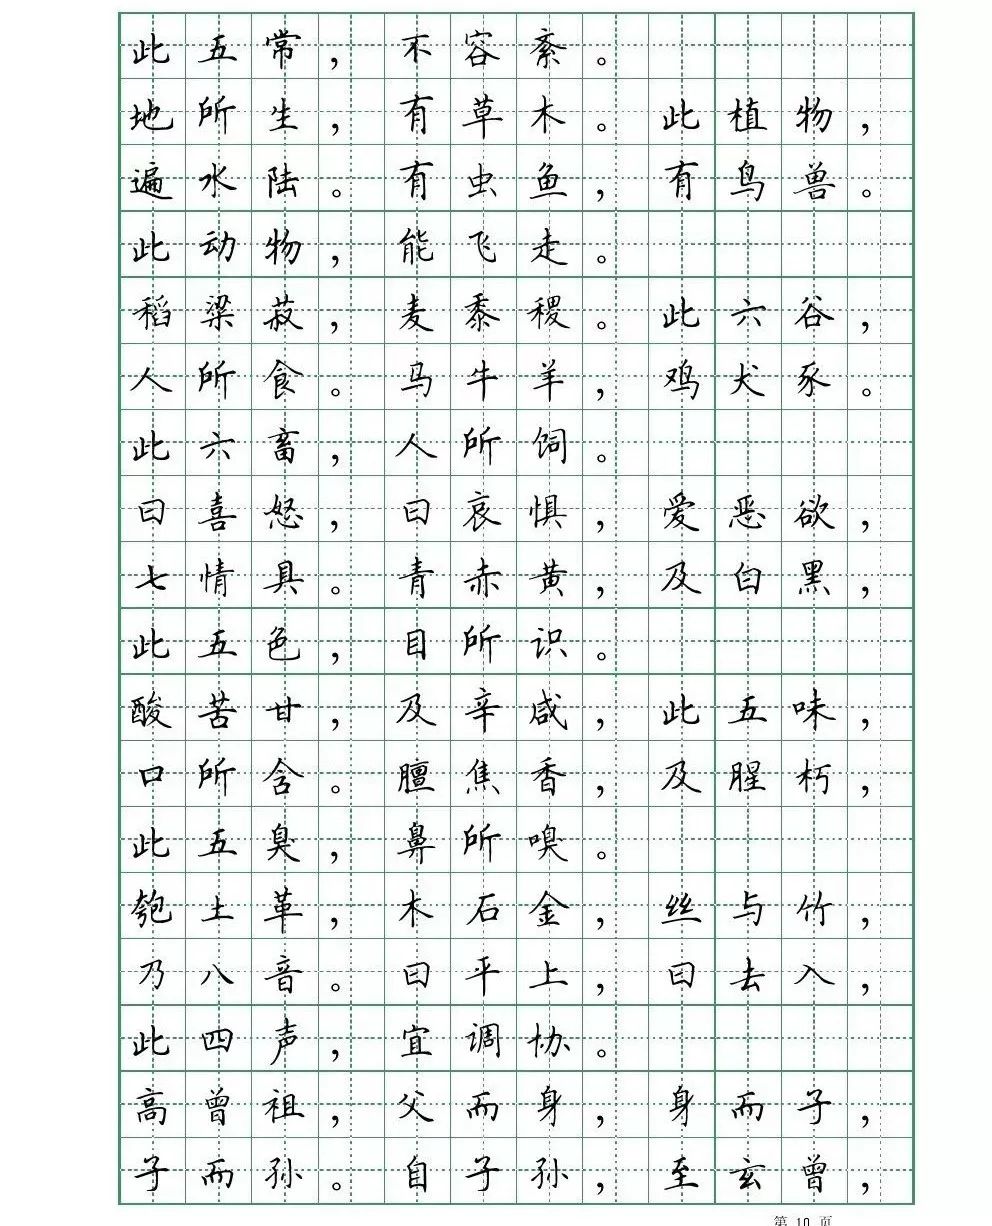 此五常，不容紊。
地所生，有草木。此植物，
遍水陆。有虫鱼，有鸟兽。
此动物，能飞走。
稻梁菽，麦黍稷。此六谷，
人所食。马牛羊，鸡犬豕。
此六畜，人所饲。
曰喜怒，曰哀惧，爱恶欲，
七情具。青赤黄，及白黑，
此五色，目所识。
酸苦甘，及辛咸，此五味，
口所含。膻焦香，及腥朽，
此五臭，鼻所嗅。
匏土革，木石金，丝与竹，
乃八音。曰平上，曰去入，
此四声，宜调协。
高曾祖，父而身，身而子，
子而孙。自子孙，至玄曾，
第 10 页